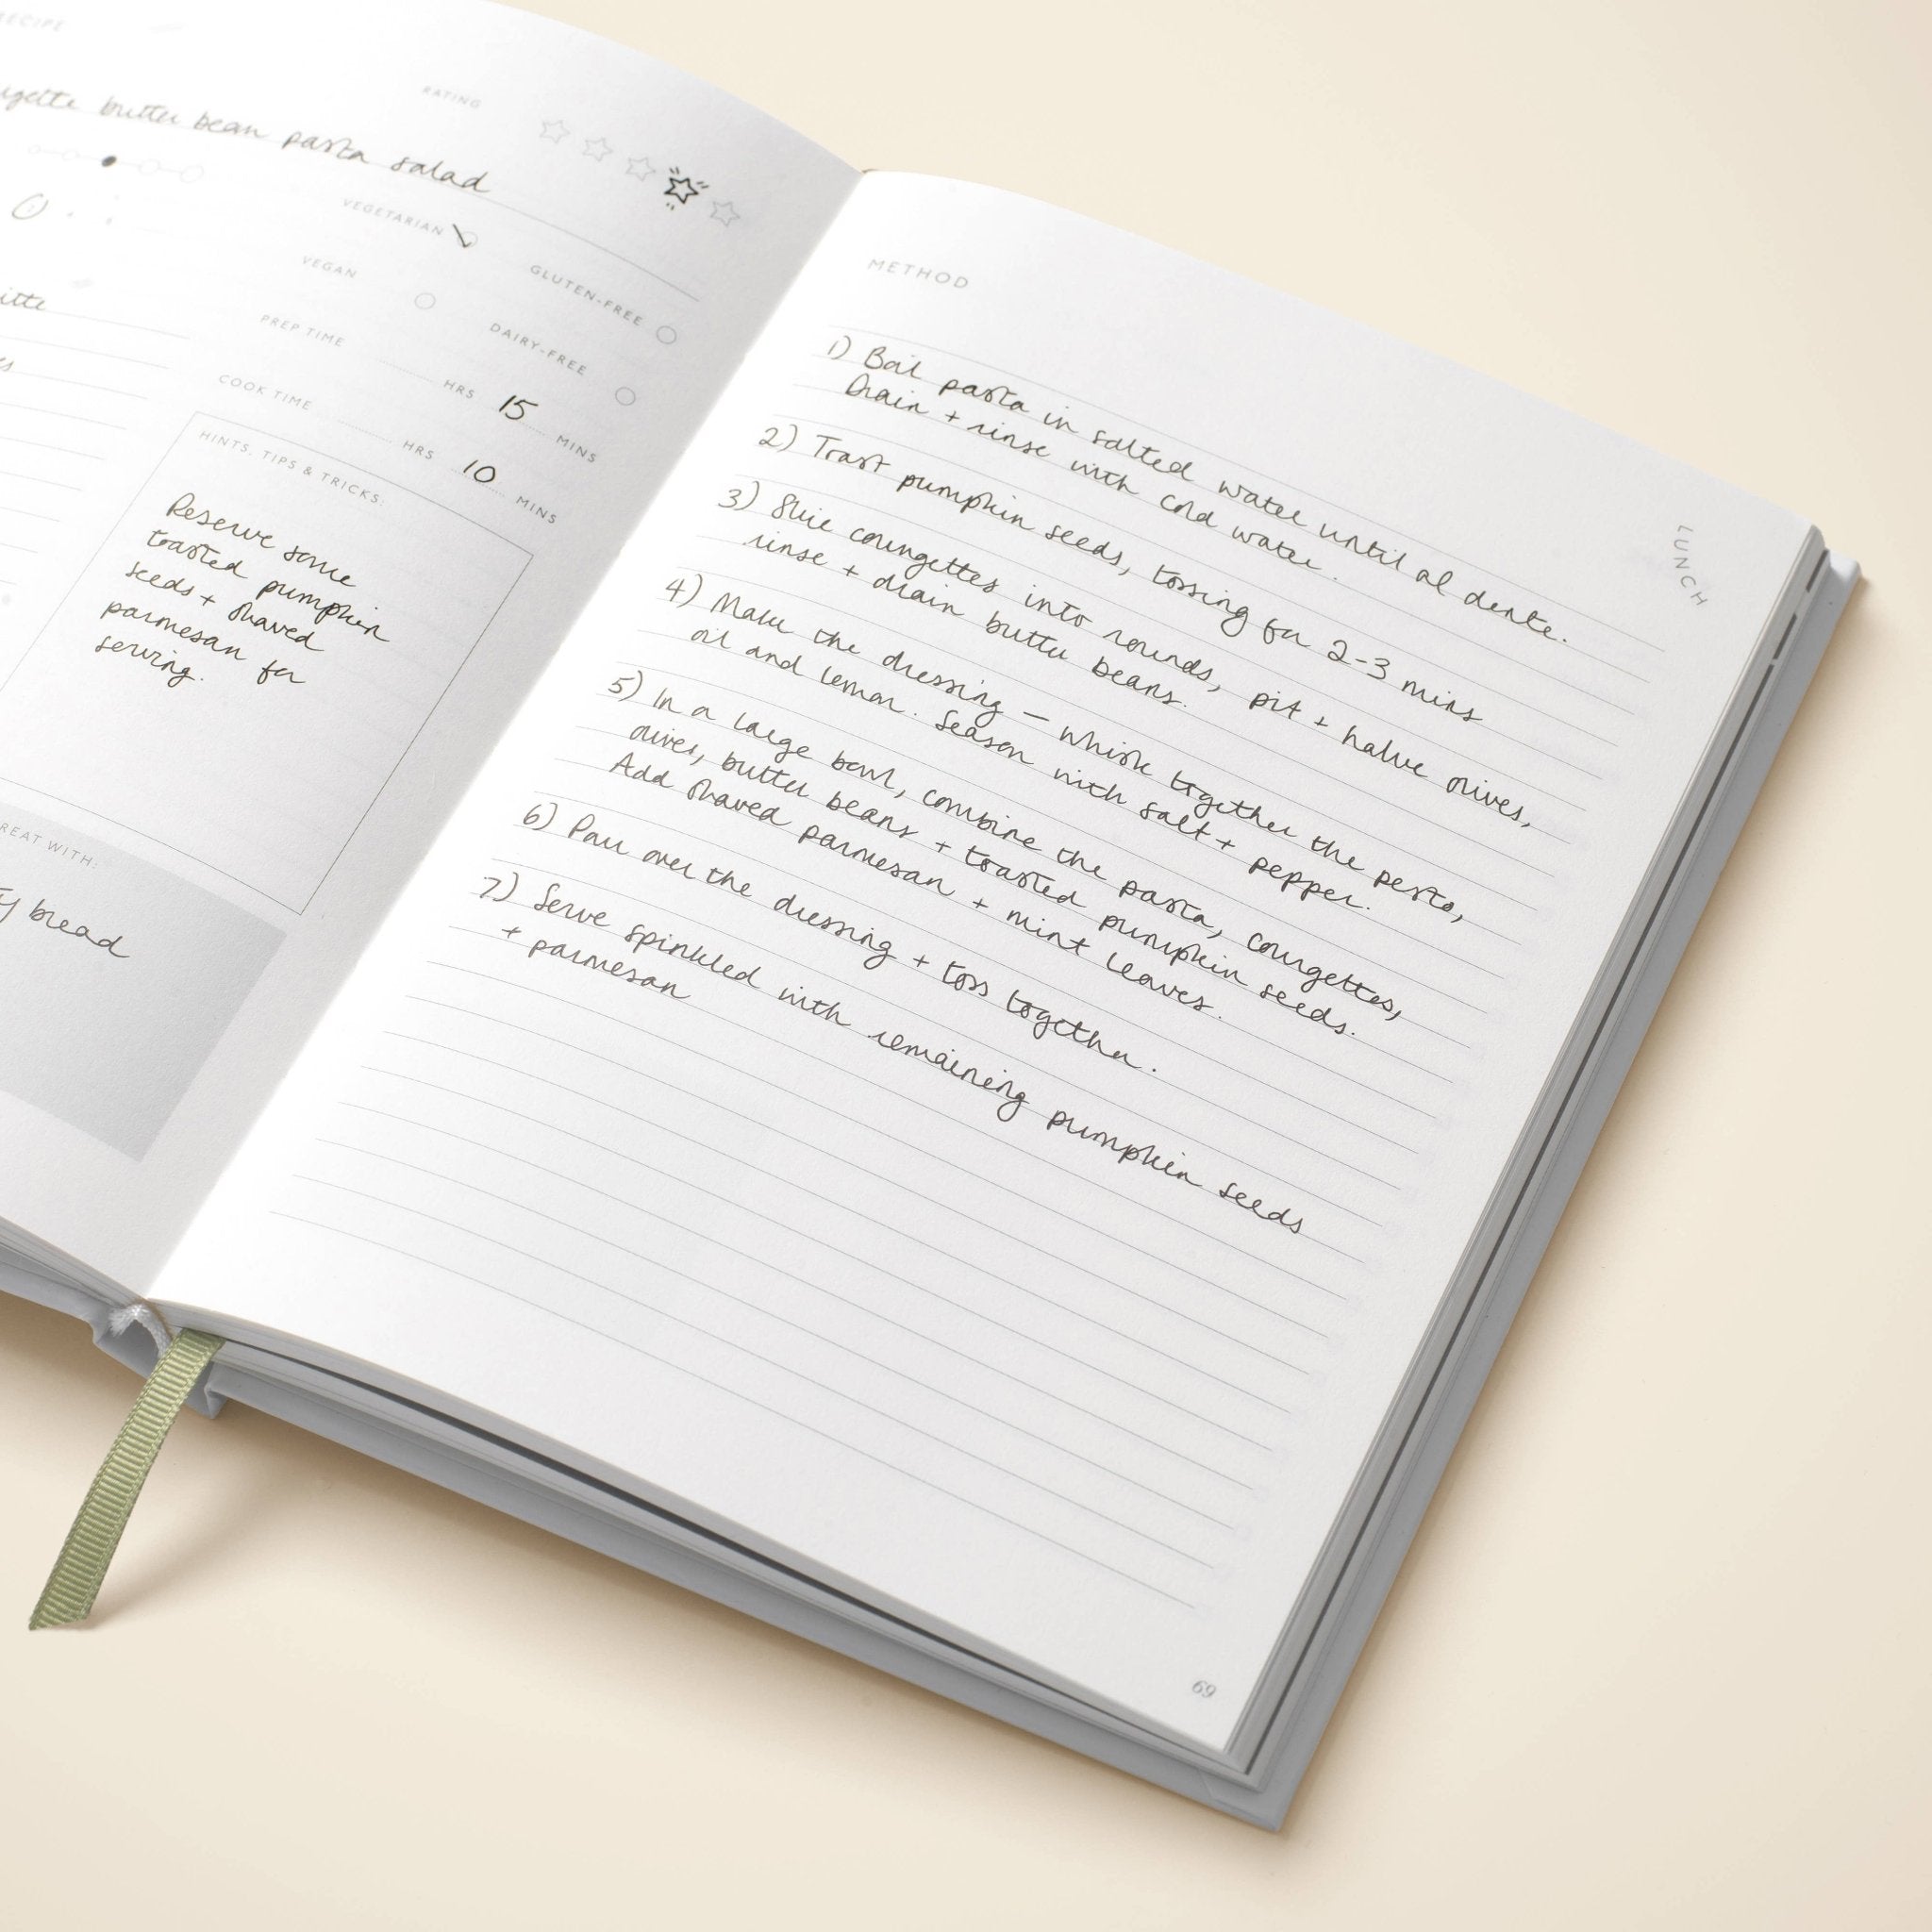 RECIPE
butter bean pasta salad
RATING
VEGETARIAN
GLUTEN-FREE
VEGAN
DAIRY-FREE
PREP TIME HRS 15 MINS
COOK TIME HRS 10 MINS
HINTS, TIPS & TRICKS:
Reserve some
toasted pumpkin
seeds + shaved
parmesan for
serving.
WITH:
bread
METHOD
1) Boil pasta in salted water until al dente.
Drain + rinse with cold water.
2) Toast pumpkin seeds, tossing for 2-3 mins
3) Slice courgettes into rounds, pit + halve olives,
rinse + drain butter beans.
4) Make the dressing - whisk together the pesto,
oil and lemon. Season with salt + pepper.
5) In a large bowl, combine the pasta, courgettes,
olives, butter beans + toasted pumpkin seeds.
Add shaved parmesan + mint leaves.
6) Pour over the dressing + toss together.
7) Serve spinkled with remaining pumpkin seeds
+ parmesan
LUNCH
69